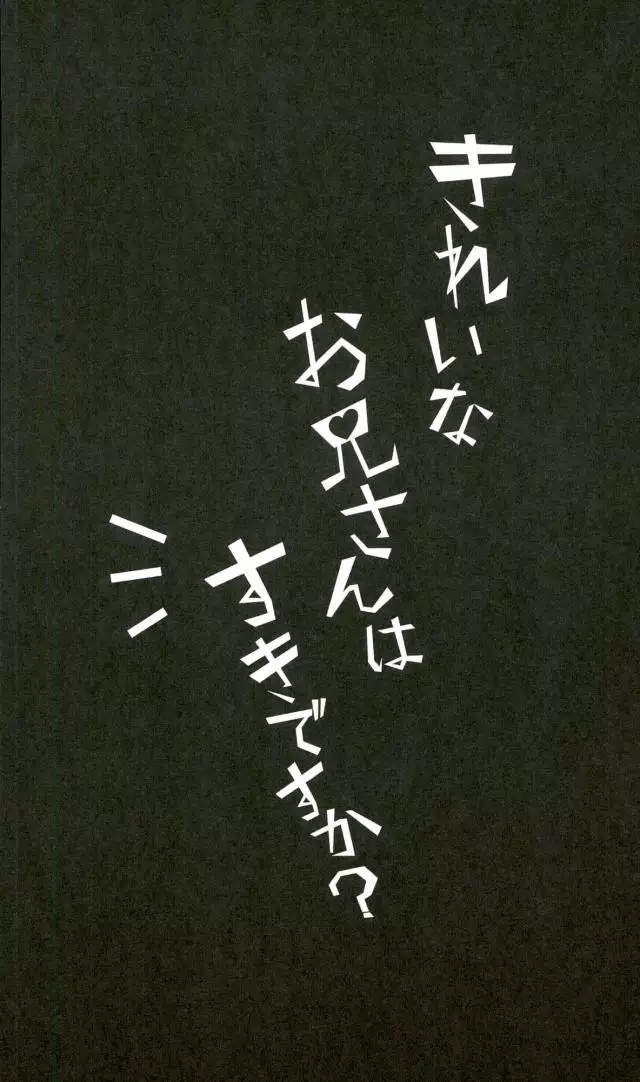 きれいな
お兄さんは
すきですか?